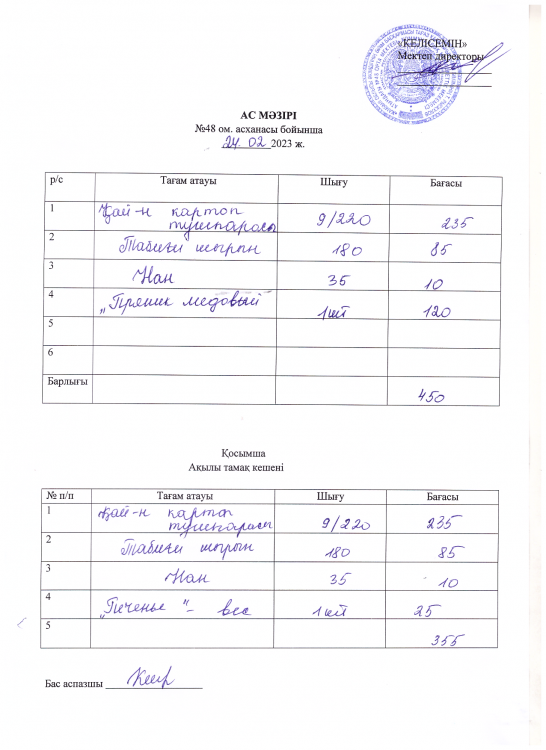 «КЕЛІСЕМІН»
Мектеп директоры
АС МӘЗІРІ
№48 ом. асханасы бойынша
24. 02 2023 ж.
р/с Тағам атауы Шығу Бағасы
1 Қай-н картоп тушпарасы 9/220 235
2 Табиғи шырын 180 85
3 Нан 35 10
4 „Пряник медовый" 1шт 120
5
6
Барлығы 450
Қосымша
Ақылы тамақ кешені
№ п/п Тағам атауы Шығу Бағасы
1 Қай-н картоп тушпарасы 9/220 235
2 Табиғи шырын 180 85
3 Нан 35 10
4 „Печенье "- вес 1шт 25
5 355
Бас аспазшы